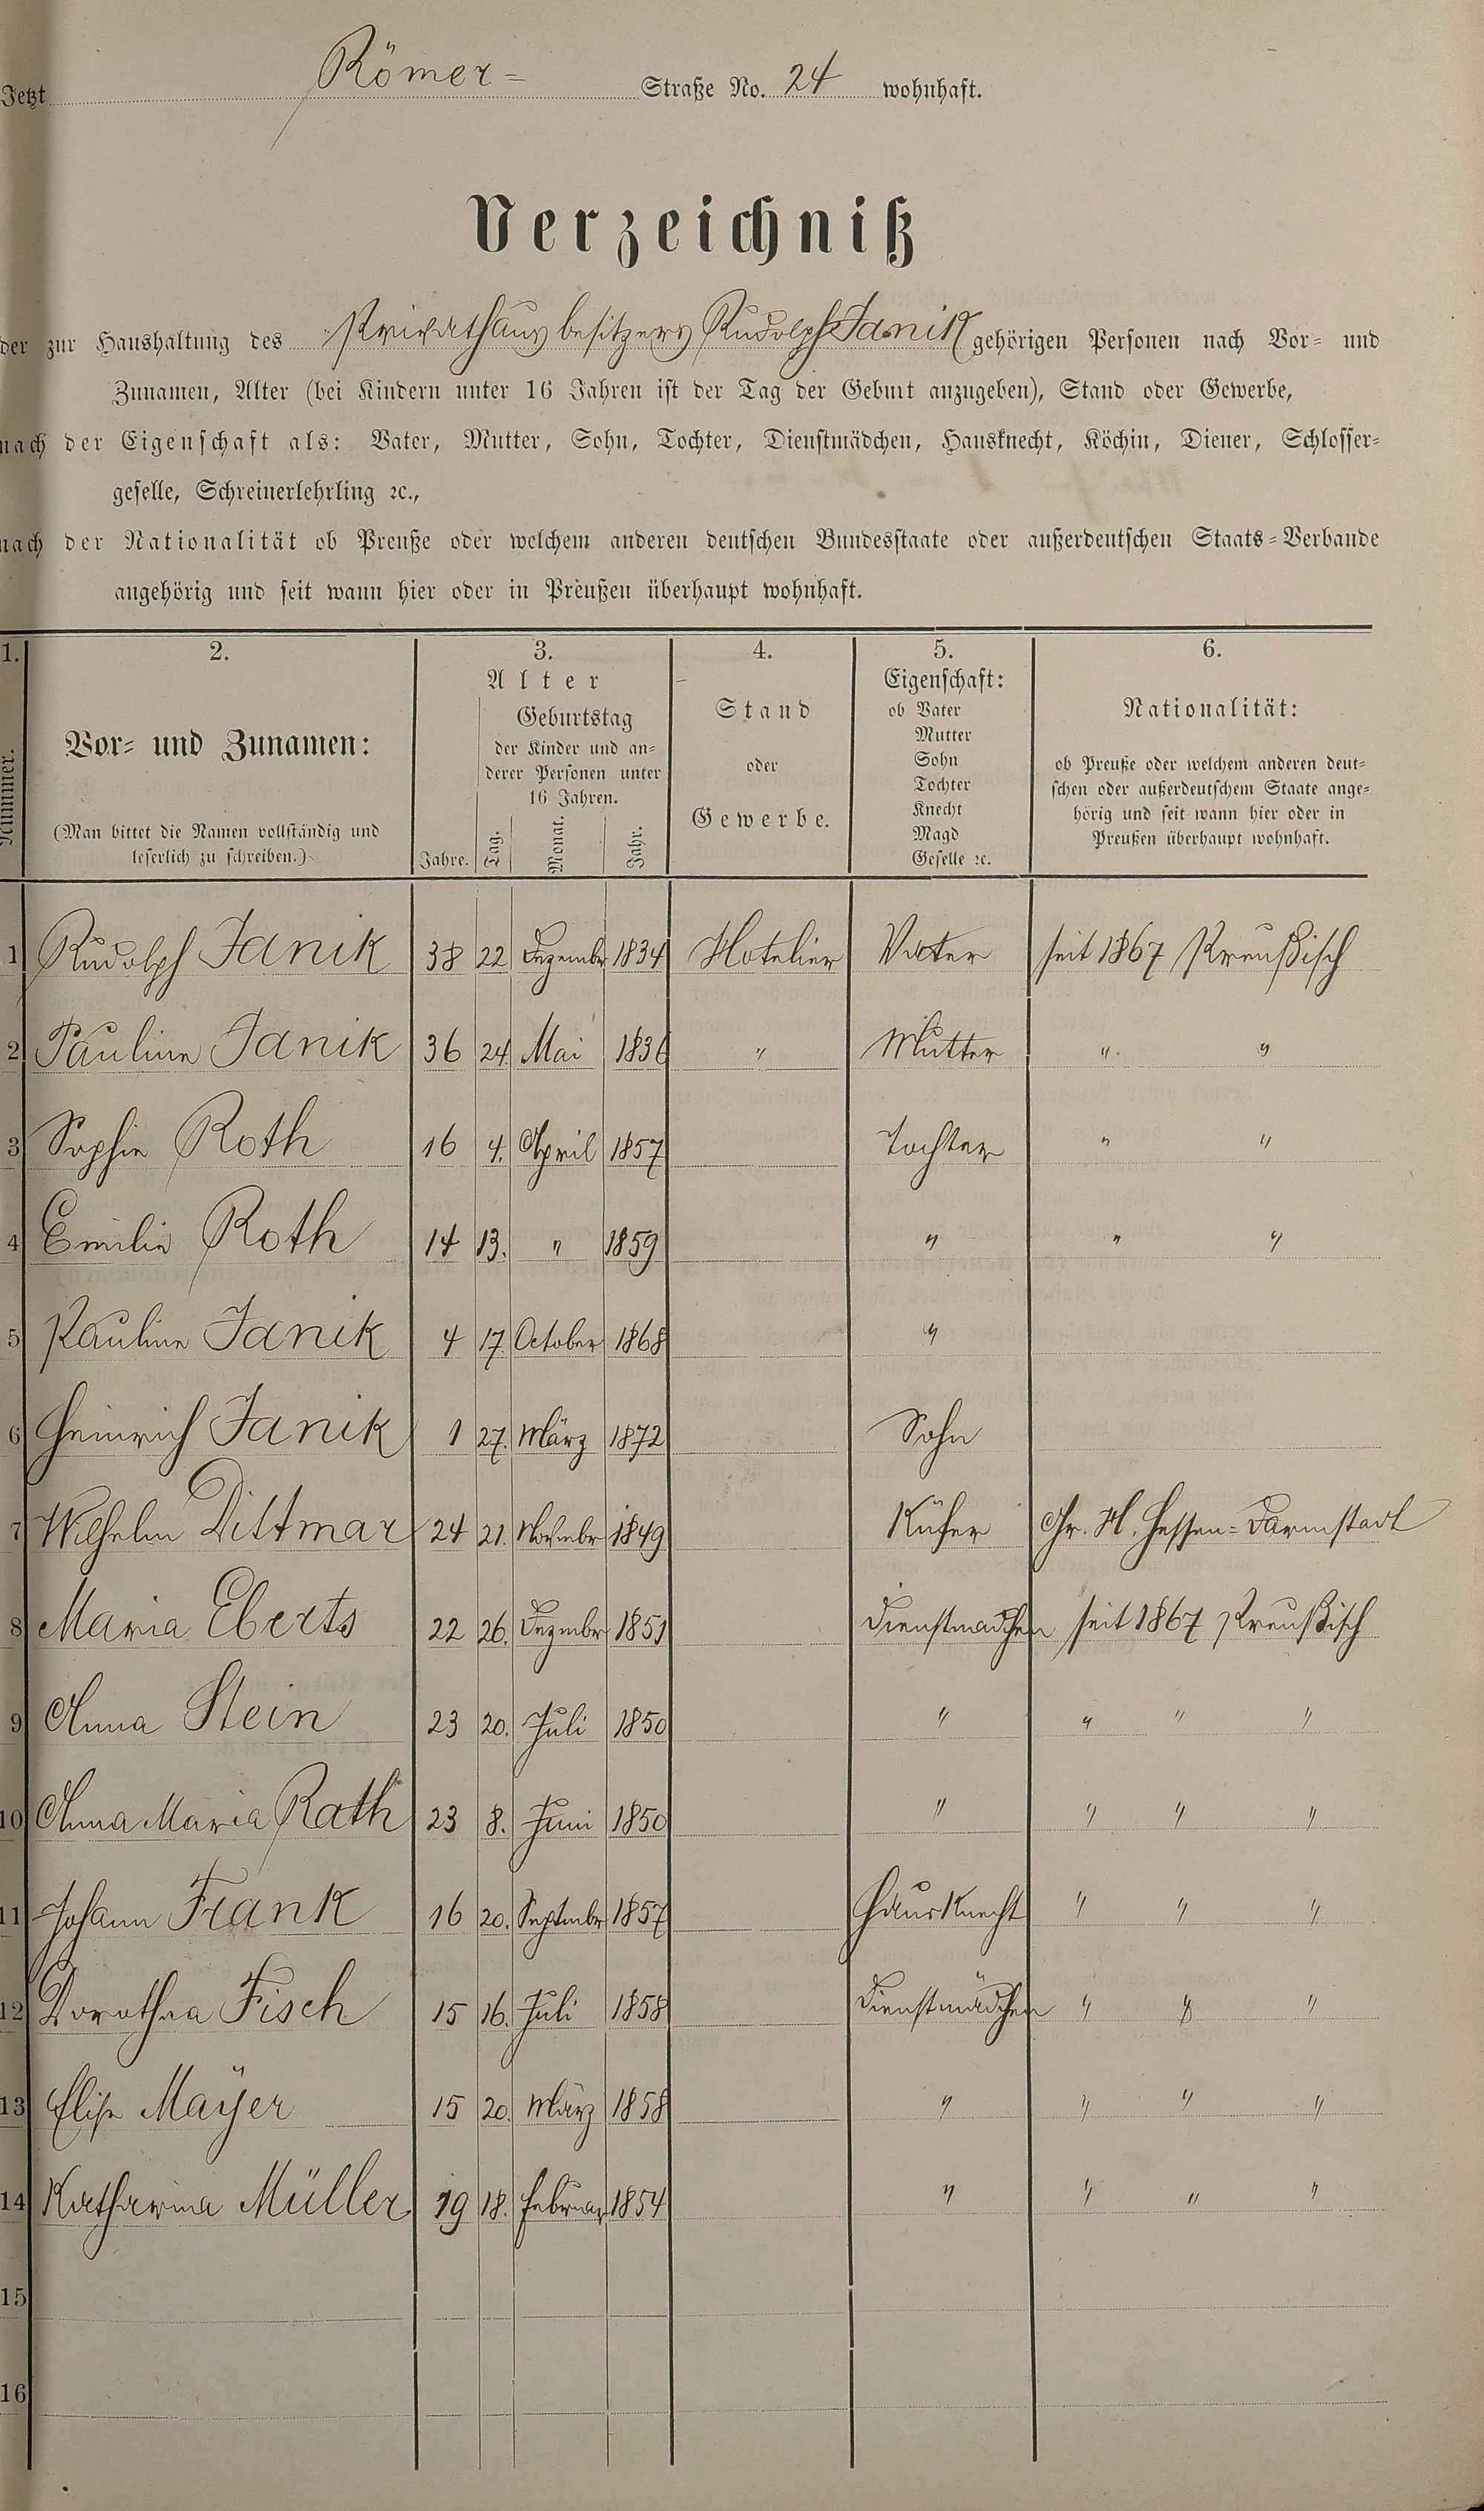 Jetzt Römer= Straße No. 24 wohnhaft.
Verzeichniß
der zur Haushaltung des Privathausbesitzers Rudolph Janik gehörigen Personen nach Vor= und
Zunamen, Alter (bei Kindern unter 16 Jahren ist der Tag der Geburt anzugeben), Stand oder Gewerbe,
nach der Eigenschaft als: Vater, Mutter, Sohn, Tochter, Dienstmädchen, Hausknecht, Köchin, Diener, Schlosser=
geselle, Schreinerlehrling ꝛc.,
nach der Nationalität ob Preuße oder welchem anderen deutschen Bundesstaate oder außerdeutschen Staats=Verbande
angehörig und seit wann hier oder in Preußen überhaupt wohnhaft.
1. 2. 3. 4. 5. 6.
Nummer.
Vor= und Zunamen:
(Man bittet die Namen vollständig und
leserlich zu schreiben.)
Alter
Jahre.
Geburtstag
der Kinder und an=
derer Personen unter
16 Jahren.
Tag. Monat. Jahr.
Stand
oder
Gewerbe.
Eigenschaft:
ob Vater
Mutter
Sohn
Tochter
Knecht
Magd
Geselle ꝛc.
Nationalität:
ob Preuße oder welchem anderen deut=
schen oder außerdeutschem Staate ange=
hörig und seit wann hier oder in
Preußen überhaupt wohnhaft.
1 Rudolph Janik 38 22 Dezembr 1834 Hotelier Vater seit 1867 Preußisch
2 Pauline Janik 36 24. Mai 1836 " Mutter " "
3 Sophie Roth 16 4. April 1857 Tochter " "
4 Emilie Roth 14 13. " 1859 " " "
5 Pauline Janik 4 17 October 1868 "
6 Heinrich Janik 1 27. März 1872 Sohn
7 Wilhelm Dittmar 24 21. Novembr 1849 Küfer Gr. H. Hessen=Darmstadt
8 Maria Eberts 22 26. Dezembr 1851 Dienstmädchen seit 1867 Preußisch
9 Anna Stein 23 20. Juli 1850 " " " "
10 Anna Maria Rath 23 8. Juni 1850 " " " "
11 Johann Frank 16 20. Septmbr 1857 Hausknecht " " "
12 Dorothea Fisch 15 16. Juli 1858 Dienstmädchen " " "
13 Elise Maÿer 15 20. März 1858 " " " "
14 Katharina Müller 19 18. Februar 1854 " " " "
15
16